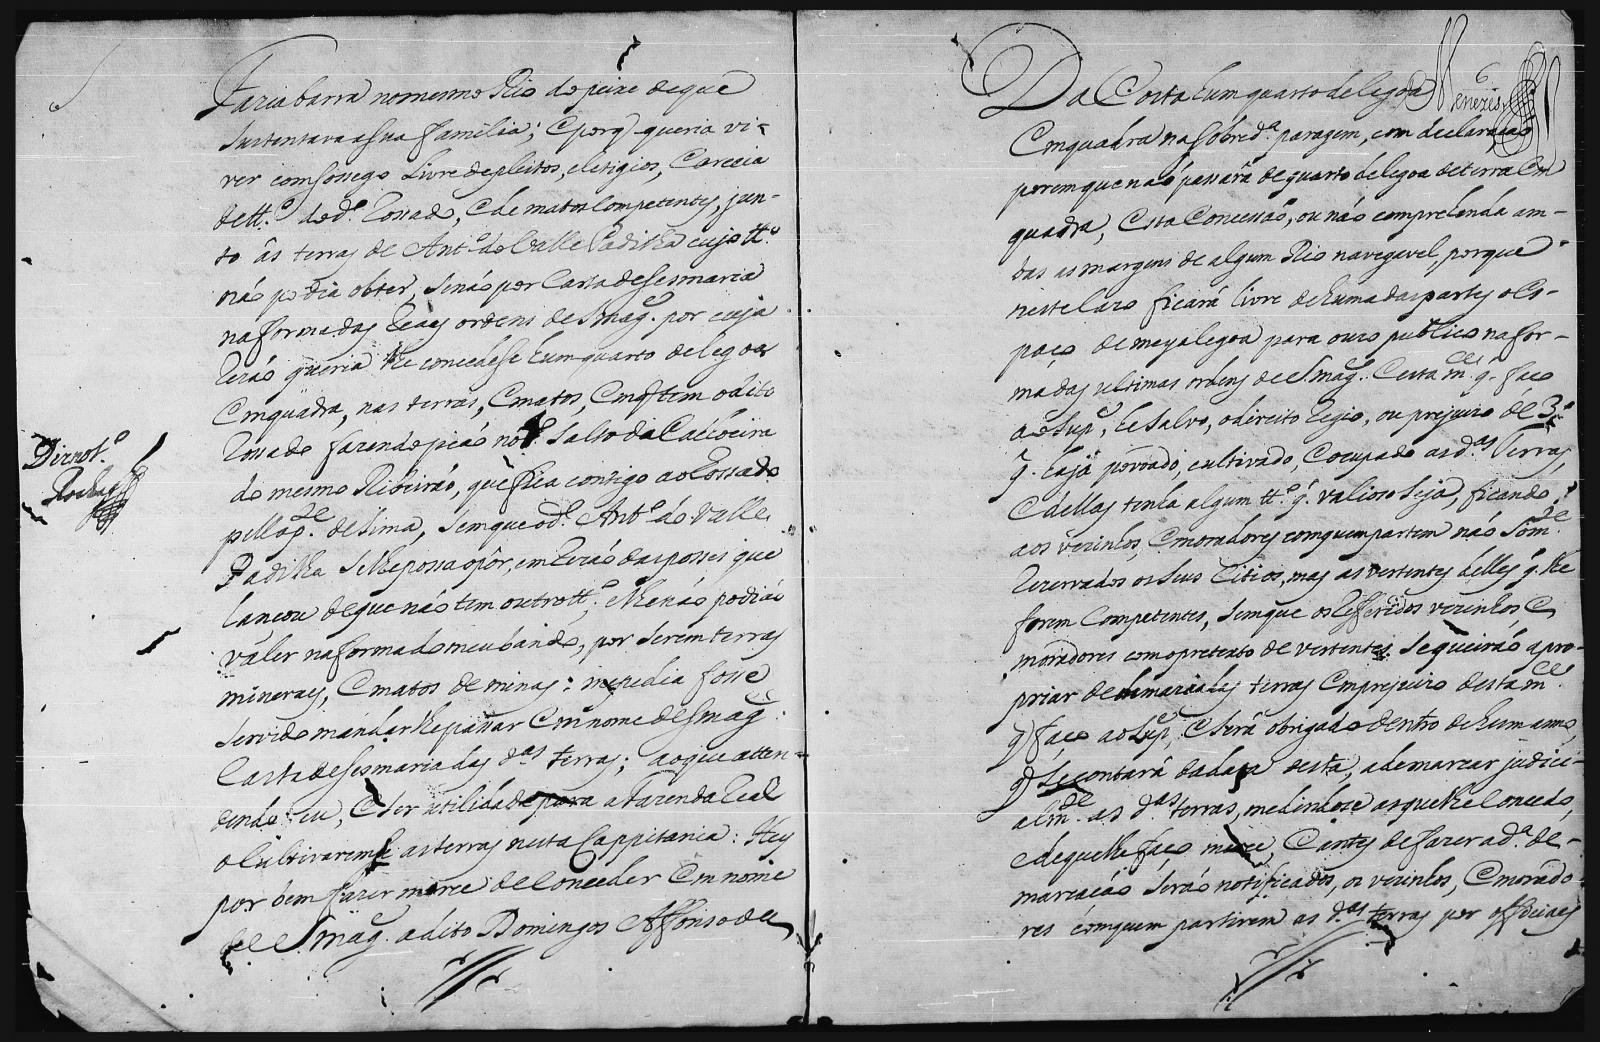 Faria barra no mesmo Rio do peixe de que
sustentava a sua familia; E porq̃ queria vi-
ver com soçego Livre de pleitos, eletigios, Careçia
de tt.º do d.º Rossado, E de matos Competentes, jun-
to âs terras de Ant.º do Valle Padilha cujo tt.º
não podia obter, senão por Carta de Sesmaria
na forma das Reaes ordens de S Mag.e por cuja
Rezão queria lhe concedese hum quarto de legoa
Em quadra, nas terras, E matos, Em q̃ tem o dito
Rossado fazendo pião no Salto da Caxoeira
do mesmo Ribeirão, que fica contigo ao Rossado
pella p.te de sima, sem que o d.º Ant.º do Valle
Padilha se lhe possa opôr, em Rezão das posses que
lançou de que não tem outro tt.º; E lhe não podião
valer na forma do meu bando, por serem terras
mineraes, E matos de minas: me pedia fosse
servido mandar lhe passar Em nome de S Mag.e
Carta de Sesmaria das d.as terras; ao que atten-
dendo eu, E ser utilidade para a Fazenda Real
o Cultivaremse as terras nesta Cappitania: Hey
por bem fazer merce de Conceder Em nome
de S Mag.e a dito Domingos Affonso de
Dir.º not.º
Rocha
Menezes
Da Costa hum quarto de legoa
Em quadra na sobred.a paragem, com declaração
porem que não passarâ de quarto de legoa de terra Em
quadra, Esta Concessão, ou não comprehenda am-
bas as margens de algum Rio navegavel, porque
neste cazo ficará livre de huma das partes o Es-
paço de meya legoa para o uzo publico na for-
ma das ultimas ordens de S Mag.e: E esta m.ce q̃ faço
ao Sup.e, he salvo, o direito Regio, ou prejuizo de 3.º
q̃ haja povoado, cultivado, E ocupado as d.as Terras,
E dellas tenha algum tt.º q̃ valiozo seja, ficando
aos vezinhos, E moradores com quem partem não som.te
Rezervados os seus Citios, mas as vertentes delles q̃ lhe
forem Competentes, sem que os Refferidos vezinhos, E
moradores com o pretexto de vertentes se queirão apro-
priar de demaziadas terras Em prejuizo desta m.ce
q̃ faço ao Sup.e; E serâ obrigado dentro de hum anno,
q̃ se contarâ da data desta, a demarcar judici-
alm.te as d.as terras, medindose as que lhe Concedo,
e de que lhe faço merce E antes de fazer a d.a de-
marcação serão notificados, os vezinhos, E morado-
res com quem partirem as d.as terras por officiaes